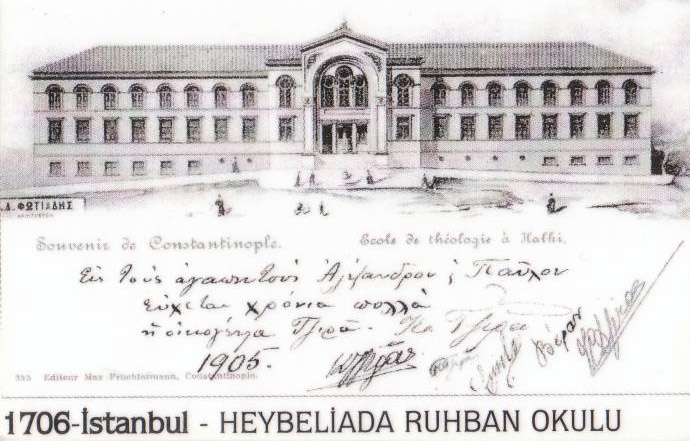 Δ. ΦΩΤΙΑΔΗΣ
ΑΡΧΙΤΕΚΤΩΝ
Souvenir de Constantinople.
Ecole de théologie à Halki.
Εις τους αγαπητους Αλέξανδρον & Παύλον
εύχεται χρόνια πολλά
η οικογένεια
1905.
355 Editeur Max Fruchtermann, Constantinople.
1706-İstanbul - HEYBELİADA RUHBAN OKULU